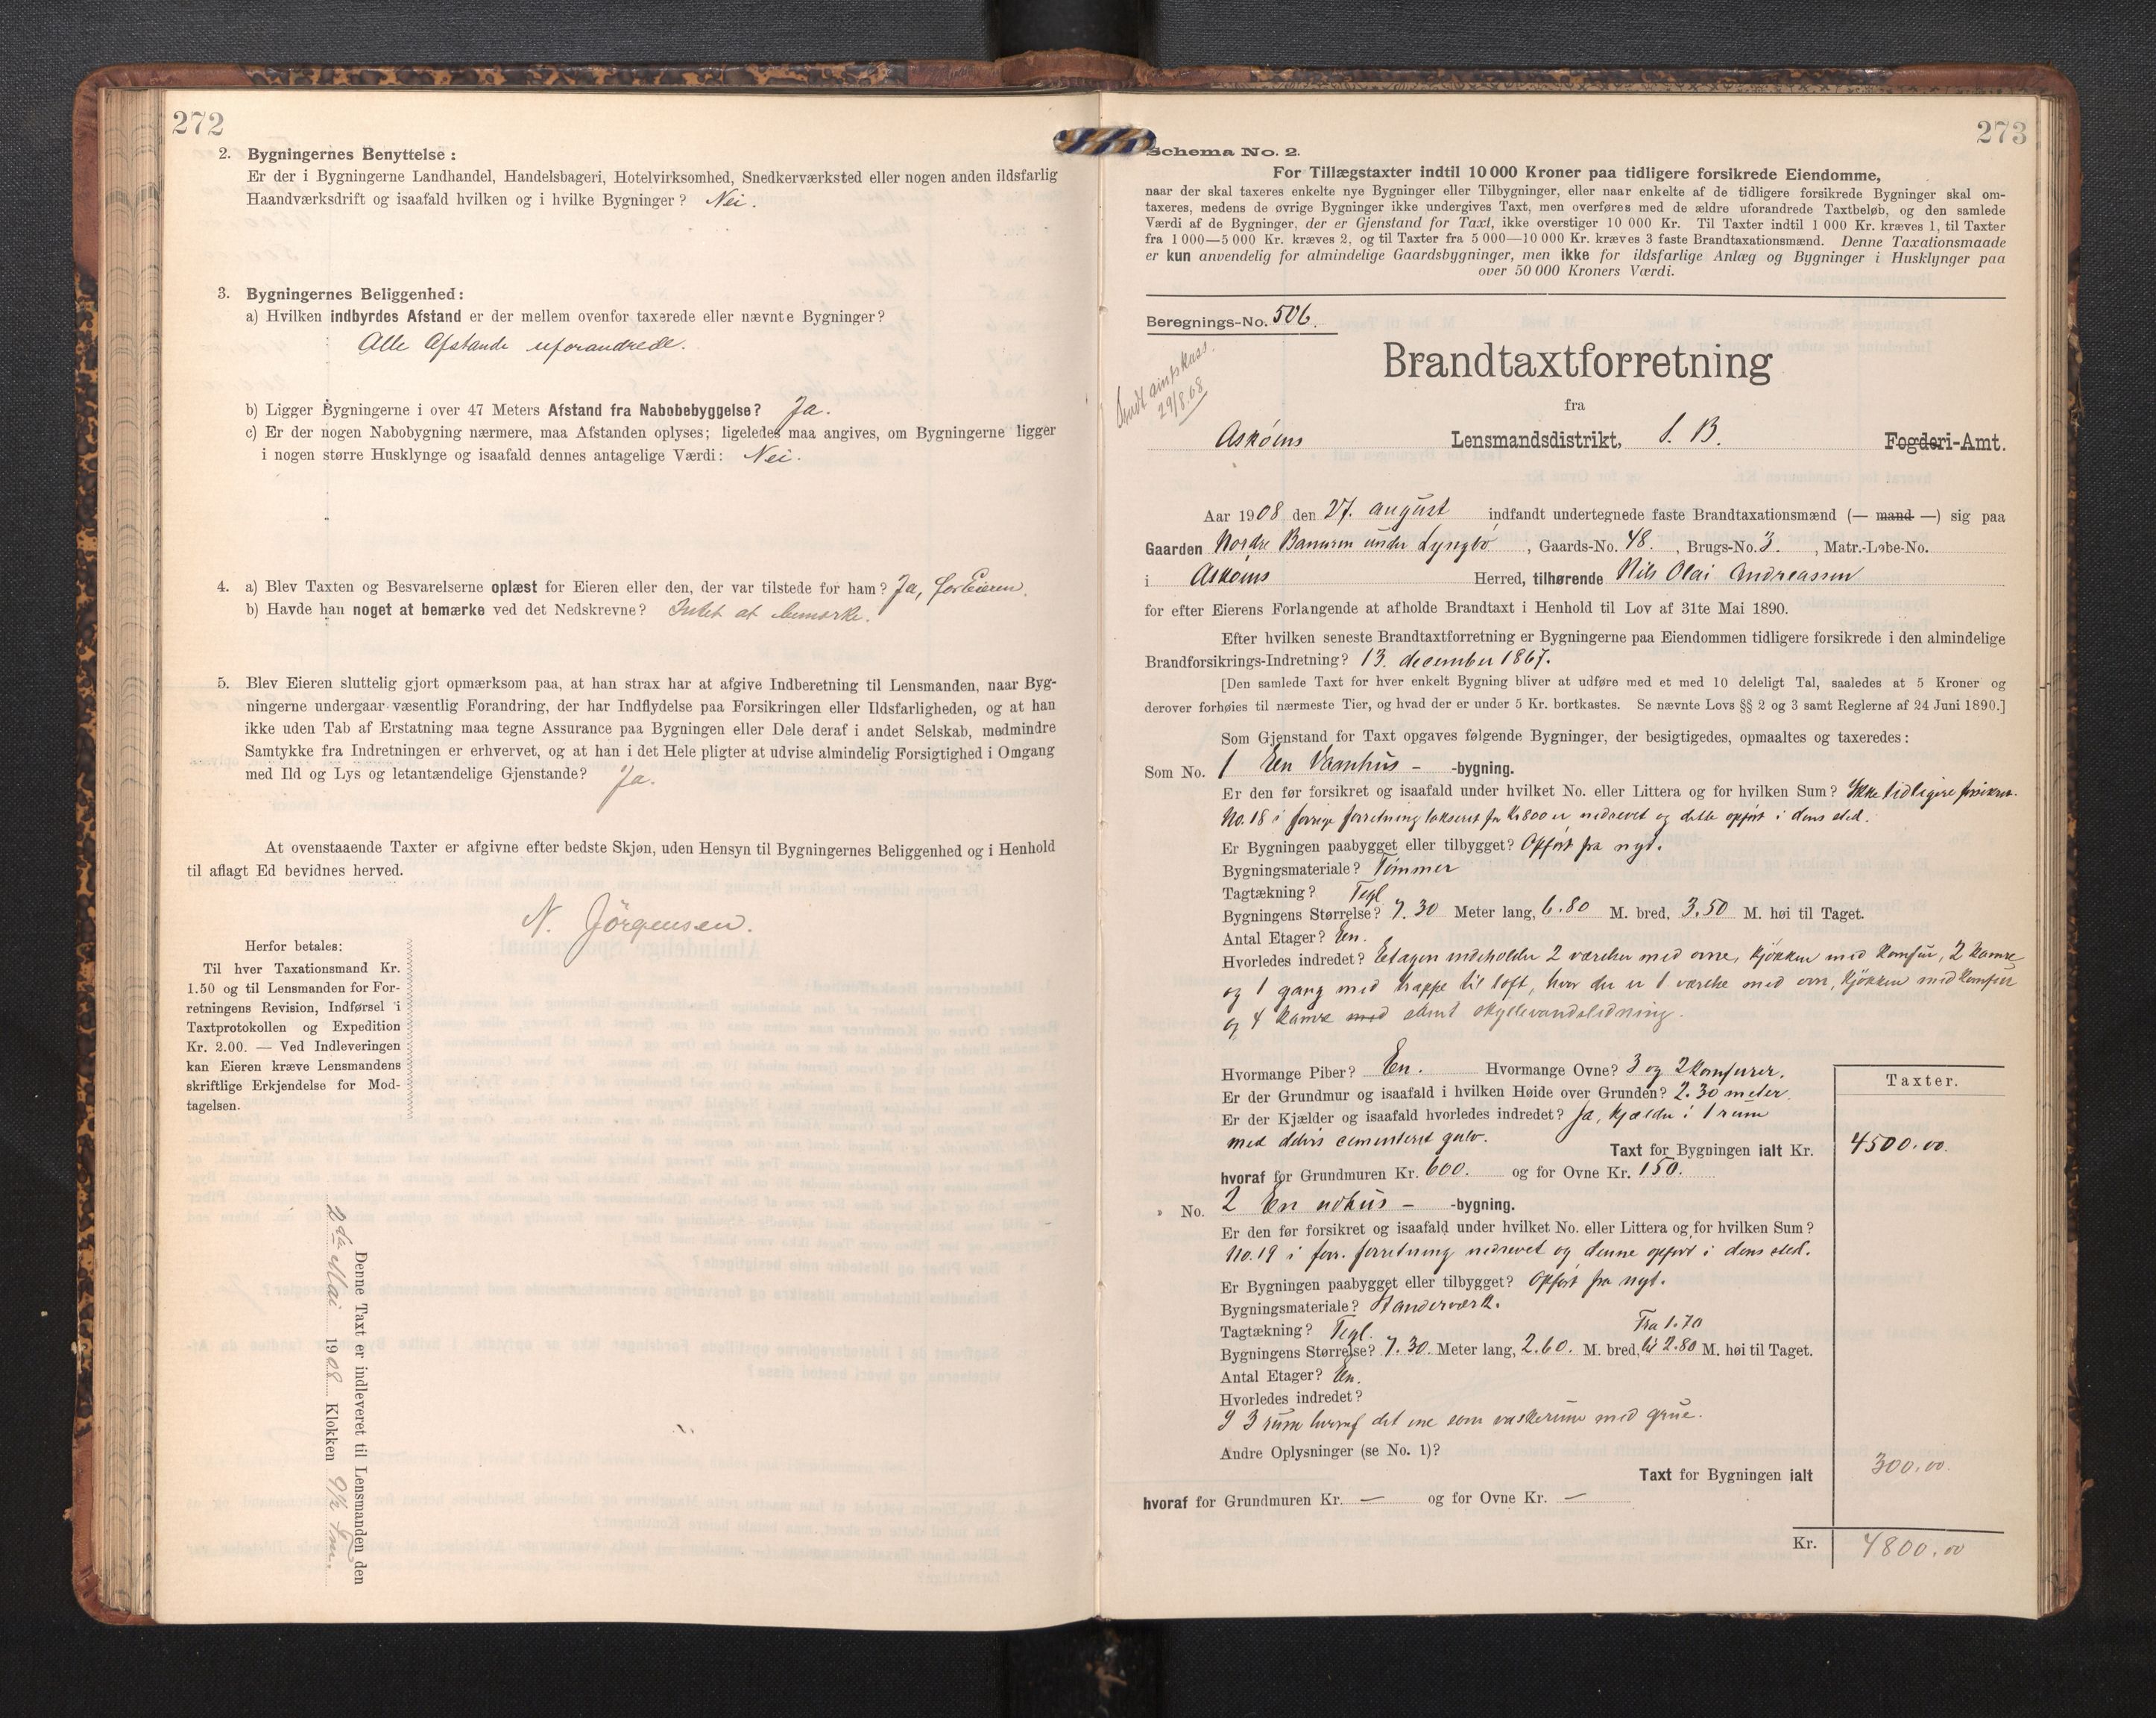 272
2. Bygningernes Benyttelse :
Er der i Bygningerne Landhandel, Handelsbageri, Hotelvirksomhed, Snedkerværksted eller nogen anden ildsfarlig
Haandværksdrift og isaafald hvilken og i hvilke Bygninger ? Nei.
3. Bygningernes Beliggenhed :
a) Hvilken indbyrdes Afstand er der mellem ovenfor taxerede eller nævnte Bygninger ?
Alle Afstande uforandrede.
b) Ligger Bygningerne i over 47 Meters Afstand fra Nabobebyggelse? Ja.
c) Er der nogen Nabobygning nærmere, maa Afstanden oplyses; ligeledes maa angives, om Bygningerne ligger
i nogen større Husklynge og isaafald dennes antagelige Værdi : Nei.
4. a) Blev Taxten og Besvarelserne oplæst for Eieren eller den, der var tilstede for ham ? Ja, for Eieren.
b) Havde han noget at bemærke ved det Nedskrevne ? Intet at bemærke.
5. Blev Eieren sluttelig gjort opmærksom paa, at han strax har at afgive Indberetning til Lensmanden, naar Byg-
ningerne undergaar væsentlig Forandring, der har Indflydelse paa Forsikringen eller Ildsfarligheden, og at han
ikke uden Tab af Erstatning maa tegne Assurance paa Bygningen eller Dele deraf i andet Selskab, medmindre
Samtykke fra Indretningen er erhvervet, og at han i det Hele pligter at udvise almindelig Forsigtighed i Omgang
med Ild og Lys og letantændelige Gjenstande ? Ja.
At ovenstaaende Taxter er afgivne efter bedste Skjøn, uden Hensyn til Bygningernes Beliggenhed og i Henhold
til aflagt Ed bevidnes herved.
N. Jörgensen.
Herfor betales:
Til hver Taxationsmand Kr.
1.50 og til Lensmanden for For-
retningens Revision, Indførsel i
Taxtprotokollen og Expedition
Kr. 2.00. — Ved Indleveringen
kan Eieren kræve Lensmandens
skriftlige Erkjendelse for Mod-
tagelsen.
Denne Taxt er indleveret til Lensmanden den
2den Mai 1908 Klokken 9½ Fm.
273
Schema No. 2.
For Tillægstaxter indtil 10 000 Kroner paa tidligere forsikrede Eiendomme,
naar der skal taxeres enkelte nye Bygninger eller Tilbygninger, eller naar enkelte af de tidligere forsikrede Bygninger skal om-
taxeres, medens de øvrige Bygninger ikke undergives Taxt, men overføres med de ældre uforandrede Taxtbeløb, og den samlede
Værdi af de Bygninger, der er Gjenstand for Taxt, ikke overstiger 10 000 Kr. Til Taxter indtil 1 000 Kr. kræves 1, til Taxter
fra 1 000—5 000 Kr. kræves 2, og til Taxter fra 5 000—10 000 Kr. kræves 3 faste Brandtaxationsmænd. Denne Taxationsmaade
er kun anvendelig for almindelige Gaardsbygninger, men ikke for ildsfarlige Anlæg og Bygninger i Husklynger paa
over 50 000 Kroners Værdi.
Beregnings-No. 506.
29/8.08
Brandtaxtforretning
fra
Askøens Lensmandsdistrikt, S. B. Fogderi-Amt.
Aar 1908 den 27. august indfandt undertegnede faste Brandtaxationsmænd (— mand —) sig paa
Gaarden Nordre under Lyngbö, Gaards-No. 48., Brugs-No. 3., Matr.-Løbe-No.
i Askøens Herred, tilhørende Nils Olai Andreassen
for efter Eierens Forlangende at afholde Brandtaxt i Henhold til Lov af 31te Mai 1890.
Efter hvilken seneste Brandtaxtforretning er Bygningerne paa Eiendommen tidligere forsikrede i den almindelige
Brandforsikrings-Indretning? 13. december 1867.
[Den samlede Taxt for hver enkelt Bygning bliver at udføre med et med 10 deleligt Tal, saaledes at 5 Kroner og
derover forhøies til nærmeste Tier, og hvad der er under 5 Kr. bortkastes. Se nævnte Lovs §§ 2 og 3 samt Reglerne af 24 Juni 1890.]
Som Gjenstand for Taxt opgaves følgende Bygninger, der besigtigedes, opmaaltes og taxeredes :
Som No. 1 Een Vaanhus - -bygning.
Er den før forsikret og isaafald under hvilket No. eller Littera og for hvilken Sum ? Ikke tidligere forsikret.
No. 18 i forrige forretning takseret for Kr 800 er nedrevet og dette opført i dens sted.
Er Bygningen paabygget eller tilbygget? Opført fra nyt.
Bygningsmateriale ? Tömmer
Tagtækning ? Tegl
Bygningens Størrelse? 7.30 Meter lang, 6.80 M. bred, 3.50 M. høi til Taget.
Antal Etager ? En.
Hvorledes indredet ? Etagen indeholder 2 værelser med ovne, kjøkken med komfur, 2 kamre
og 1 gang med trappe til loft, hvor der er 1 værelse med ovn, kjøkken med komfur
og 4 kamre med samt skyllevandsledning.
Hvormange Piber? En. Hvormange Ovne? 3 og 2 komfurer.
Er der Grundmur og isaafald i hvilken Høide over Grunden? 2.30 meter.
Er der Kjælder og isaafald hvorledes indredet ? Ja, kjælder i 1 rum
med delvis cementeret gulv. Taxt for Bygningen ialt Kr.
Taxter.
4500.00.
hvoraf for Grundmuren Kr. 600. og for Ovne Kr. 150.
» No. 2 En udhus - -bygning.
Er den før forsikret og isaafald under hvilket No. eller Littera og for hvilken Sum ?
No. 19 i forr. forretning nedrevet og denne opført i dens sted.
Er Bygningen paabygget eller tilbygget? Opført fra nyt.
Bygningsmateriale ? Standerværk.
Tagtækning ? Tegl. Fra 1.70
Bygningens Størrelse? 7.30. Meter lang, 2.60. M. bred, til 2.80 M. høi til Taget.
Antal Etager ? En.
Hvorledes indredet ?
I 3 rum hvoraf det ene som vaskerum med grue.
Andre Oplysninger (se No. 1)?
Taxt for Bygningen ialt 300.00.
hvoraf for Grundmuren Kr. — og for Ovne Kr. —
Kr. 4800.00